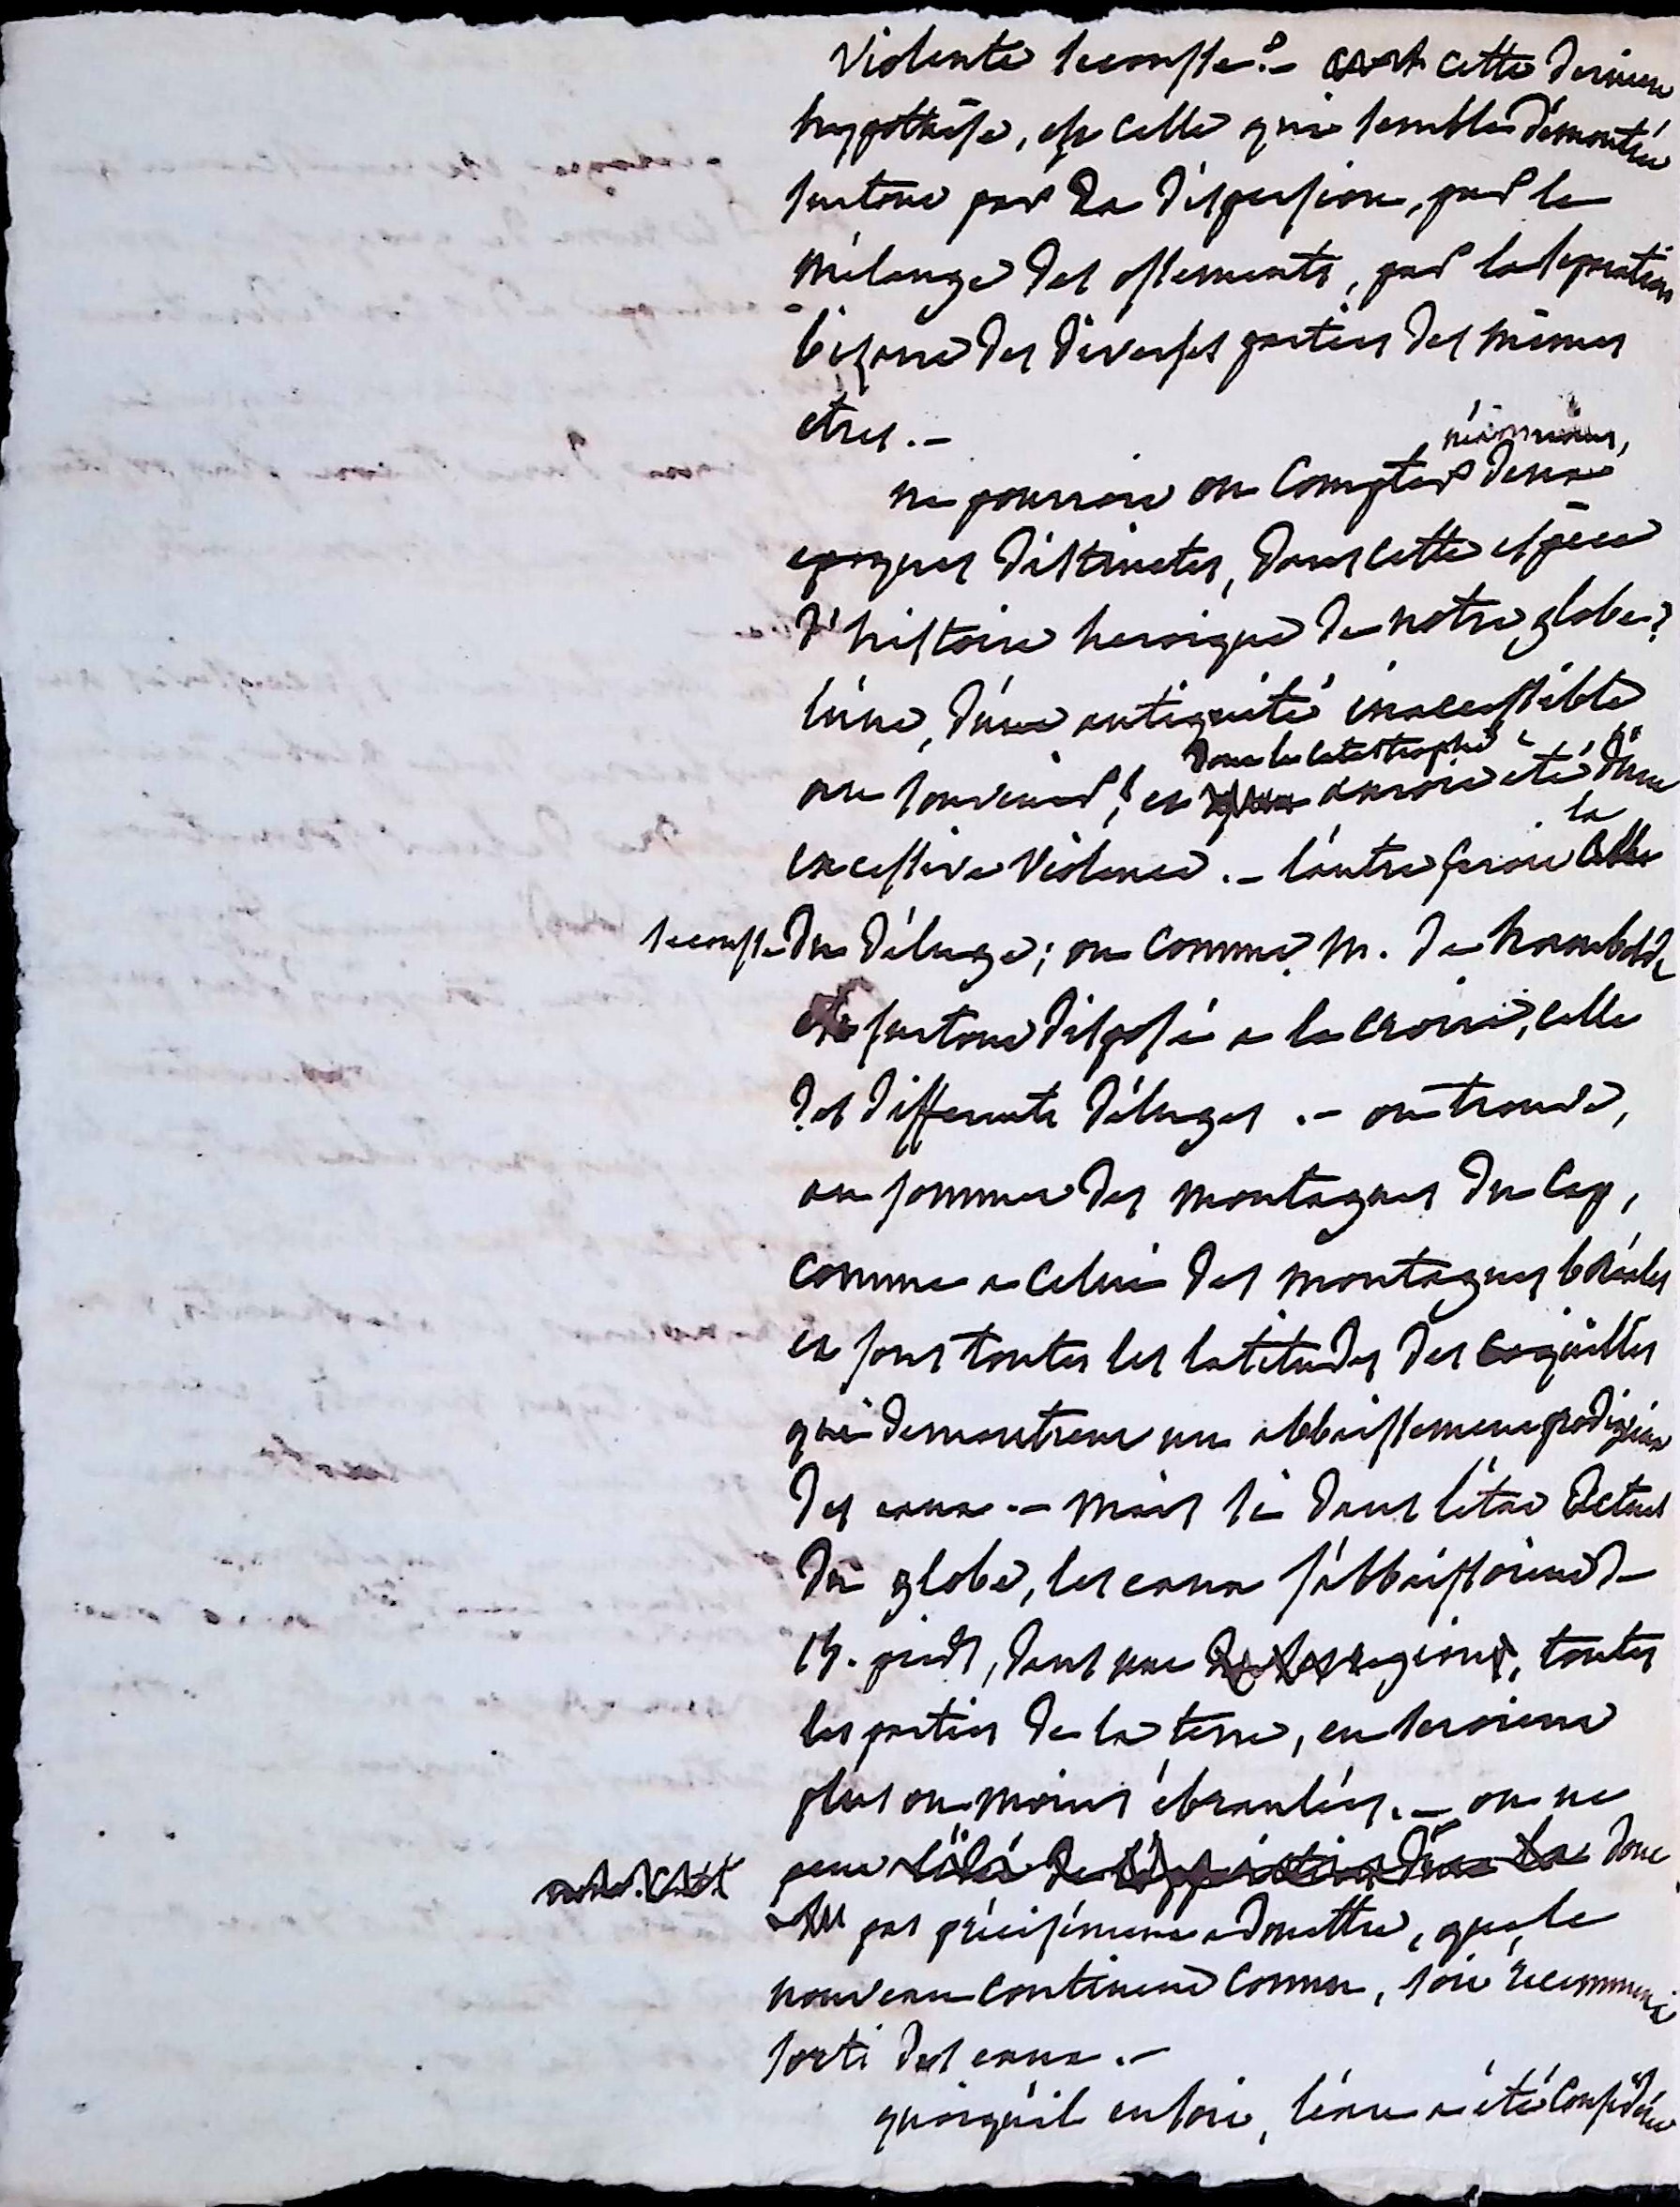 violente secousse?- cette derniere
hyppothèse, est celle qui semble démontrée
surtout par la dispersion, par le
mélange des ossements, par la separation
bizarre des diverses parties des mêmes
etres.-
néanmoins,
ne pourroit on compter deux
epoques distinctes, dans cette espèce
d'histoire heroique de notre globe?
l'une, d'une antiquité inacessible
dont la catastrophe
au souvenir, et auroit été d'une
la
excessive violence.- l'autre seroit
secousse du déluge; ou comme M. de humboldt
est surtout disposé a le croire, celle
des differents déluges.- on trouve,
au sommet des montagnes du Cap,
comme a celui des montagnes boréales
et sous toutes les latitudes des coquilles
qui demontrent un abbaissement prodigieux
des eaux.- mais si dans l'état actuel
du globe, les eaux s'abbaissoient de
15. pieds, dans une region, toutes
les parties de la terre, en seroient
plus ou moins ébranlées.- on ne
peut donc
pas précisément admettre, que le
nouveau continent connu, soit récemment
sorti des eaux.-
quoiqu'il en soit, l'eau a été considérée